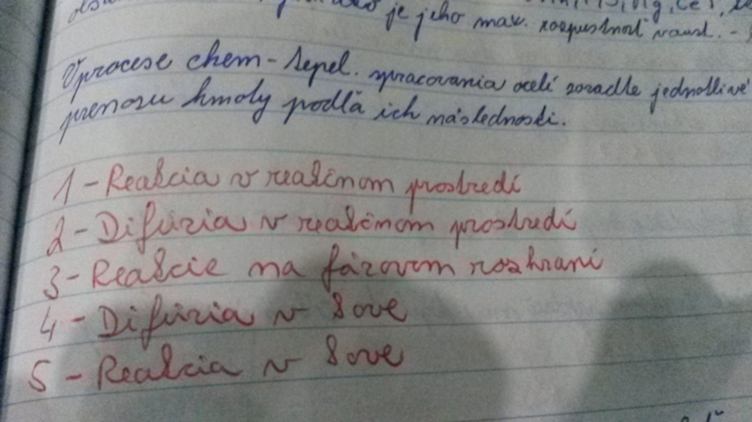 je jeho max. rozpustnosť
V procese chem-tepel. spracovania ocelí zoradte jednotlivé
prenosu hmoty podľa ich následnosti.
1 - Reakcia v reakčnom prostredí
2 - Difúzia v reakčnom prostredí
3 - Reakcie na fázovom rozhraní
4 - Difúzia v kove
5 - Reakcia v kove